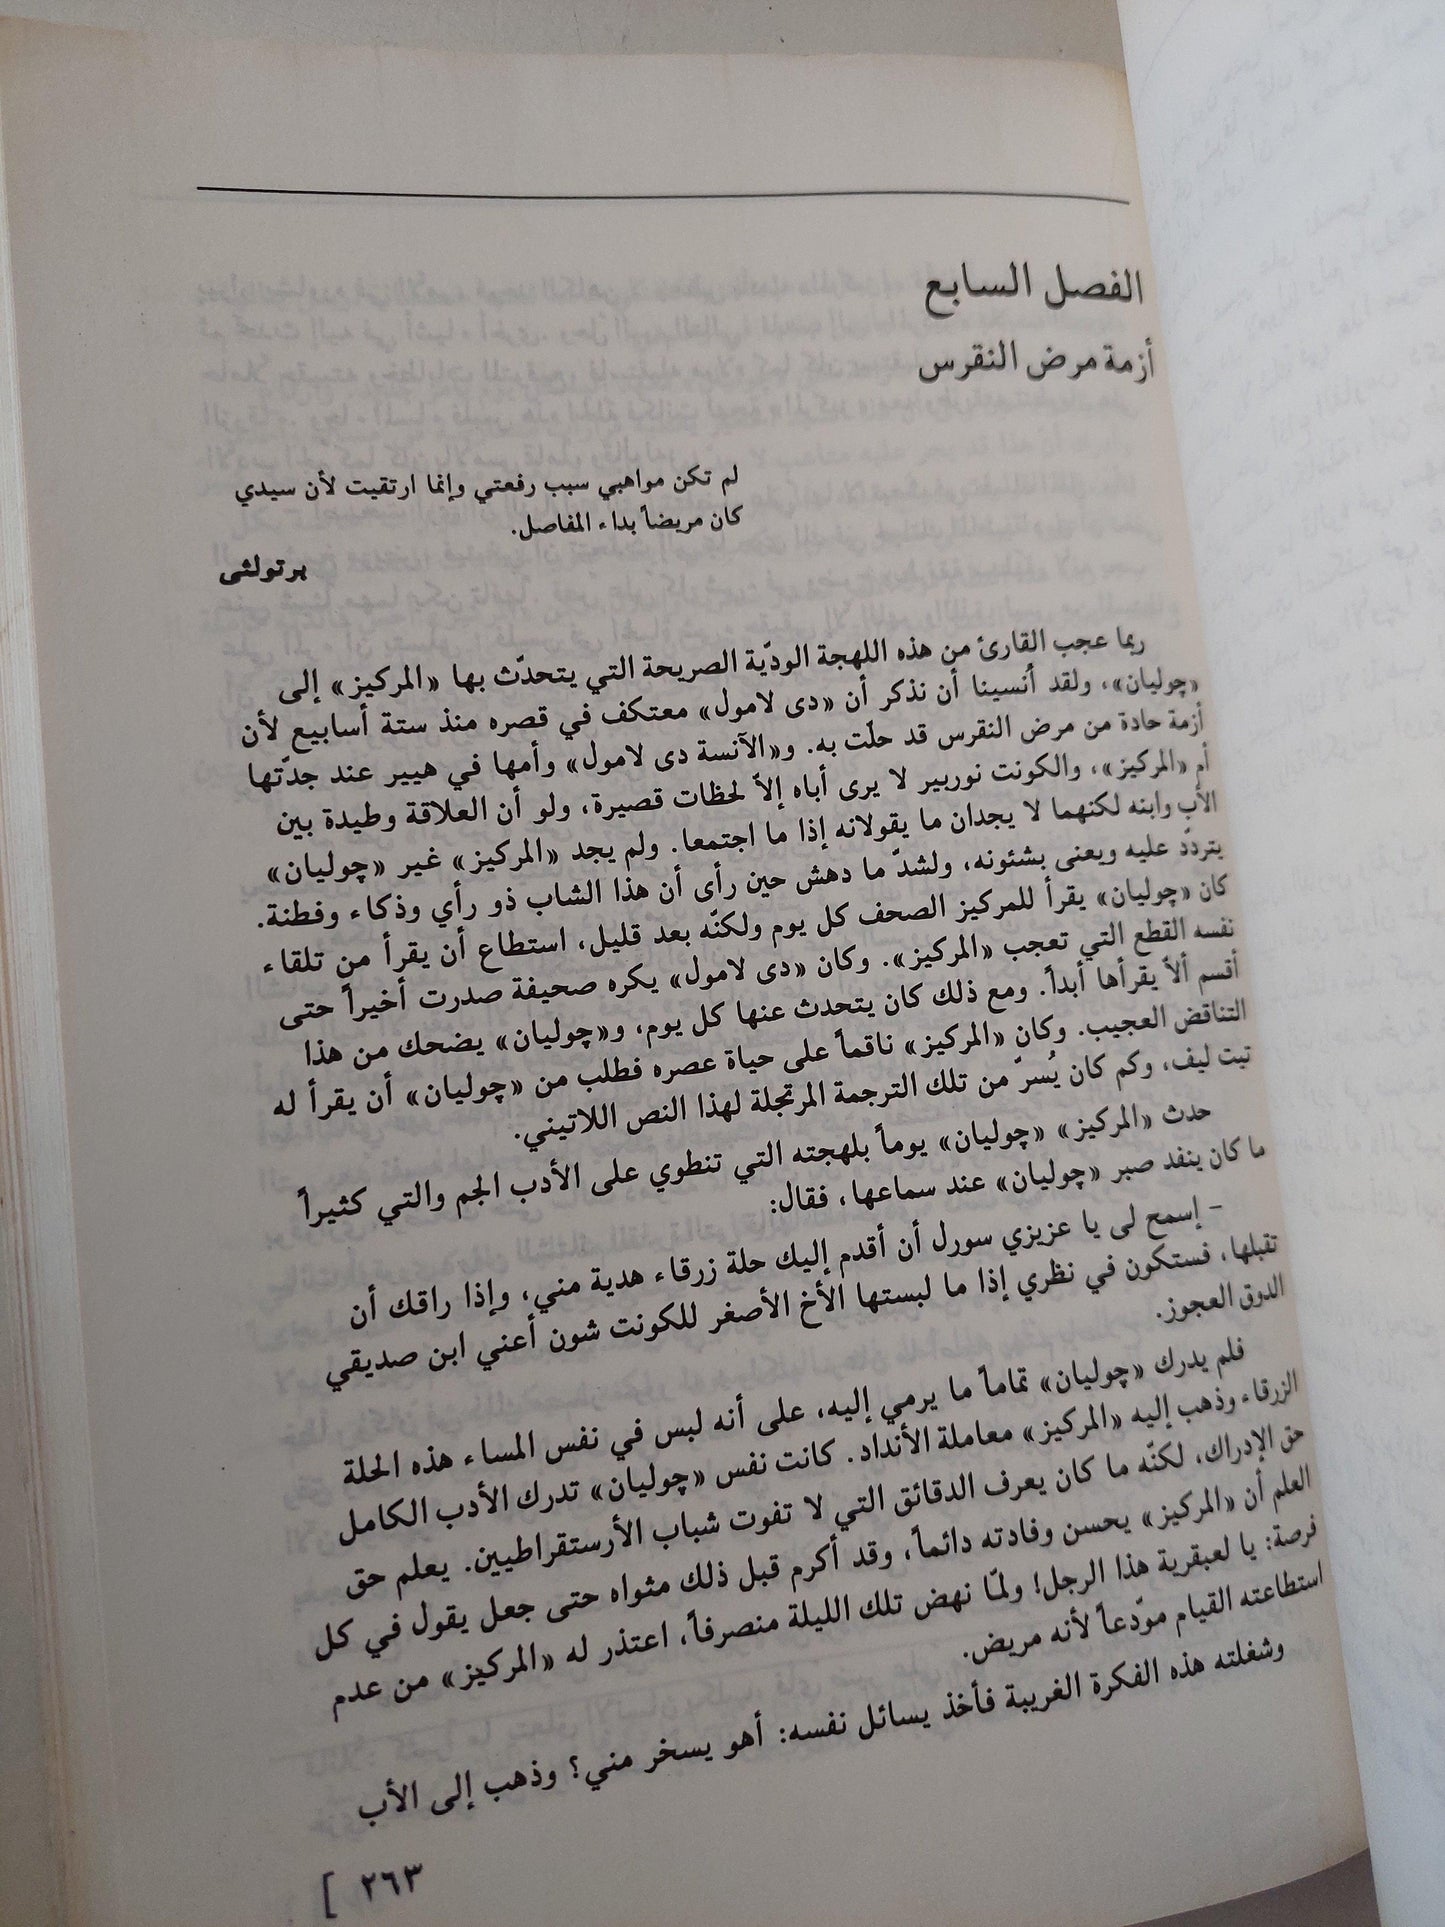 الفصل السابع
أزمة مرض النقرس
لم تكن مواهبي سبب رفعتي وإنما ارتقيت لأن سيدي
كان مريضاً بداء المفاصل.
برتولثى
ربما عجب القارئ من هذه اللهجة الودّية الصريحة التي يتحدّث بها «المركيز» إلى
«چوليان»، ولقد أنسينا أن نذكر أن «دى لامول» معتكف في قصره منذ ستة أسابيع لأن
أزمة حادة من مرض النقرس قد حلّت به. و«الآنسة دى لامول» وأمها في هيير عند جدّتها
أم «المركيز»، والكونت نوربير لا يرى أباه إلاّ لحظات قصيرة، ولو أن العلاقة وطيدة بين
الأب وابنه لكنهما لا يجدان ما يقولانه إذا ما اجتمعا. ولم يجد «المركيز» غير «چوليان»
يتردّد عليه ويعنى بشئونه، ولشدّ ما دهش حين رأى أن هذا الشاب ذو رأي وذكاء وفطنة.
كان «چوليان» يقرأ للمركيز الصحف كل يوم ولكنّه بعد قليل، استطاع أن يقرأ من تلقاء
نفسه القطع التي تعجب «المركيز». وكان «دى لامول» يكره صحيفة صدرت أخيراً حتى
أقسم ألاّ يقرأها أبداً. ومع ذلك كان يتحدث عنها كل يوم، و«چوليان» يضحك من هذا
التناقض العجيب. وكان «المركيز» ناقماً على حياة عصره فطلب من «چوليان» أن يقرأ له
تيت ليف، وكم كان يُسرّ من تلك الترجمة المرتجلة لهذا النص اللاتيني.
حدث «المركيز» «چوليان» يوماً بلهجته التي تنطوي على الأدب الجم والتي كثيراً
ما كان ينفد صبر «چوليان» عند سماعها، فقال:
– إسمح لى يا عزيزي سورل أن أقدم إليك حلة زرقاء هدية مني، وإذا راقك أن
تقبلها، فستكون في نظري إذا ما لبستها الأخ الأصغر للكونت شون أعني ابن صديقي
الدوق العجوز.
فلم يدرك «چوليان» تماماً ما يرمي إليه، على أنه لبس في نفس المساء هذه الحلة
الزرقاء وذهب إليه «المركيز» معاملة الأنداد. كانت نفس «چوليان» تدرك الأدب الكامل
حق الإدراك، لكنّه ما كان يعرف الدقائق التي لا تفوت شباب الأرستقراطيين. يعلم حق
العلم أن «المركيز» يحسن وفادته دائماً، وقد أكرم قبل ذلك مثواه حتى جعل يقول في كل
فرصة: يا لعبقرية هذا الرجل! ولمّا نهض تلك الليلة منصرفاً، اعتذر له «المركيز» من عدم
استطاعته القيام مودّعاً لأنه مريض.
وشغلته هذه الفكرة الغريبة فأخذ يسائل نفسه: أهو يسخر مني؟ وذهب إلى الأب
٢٦٣ ]